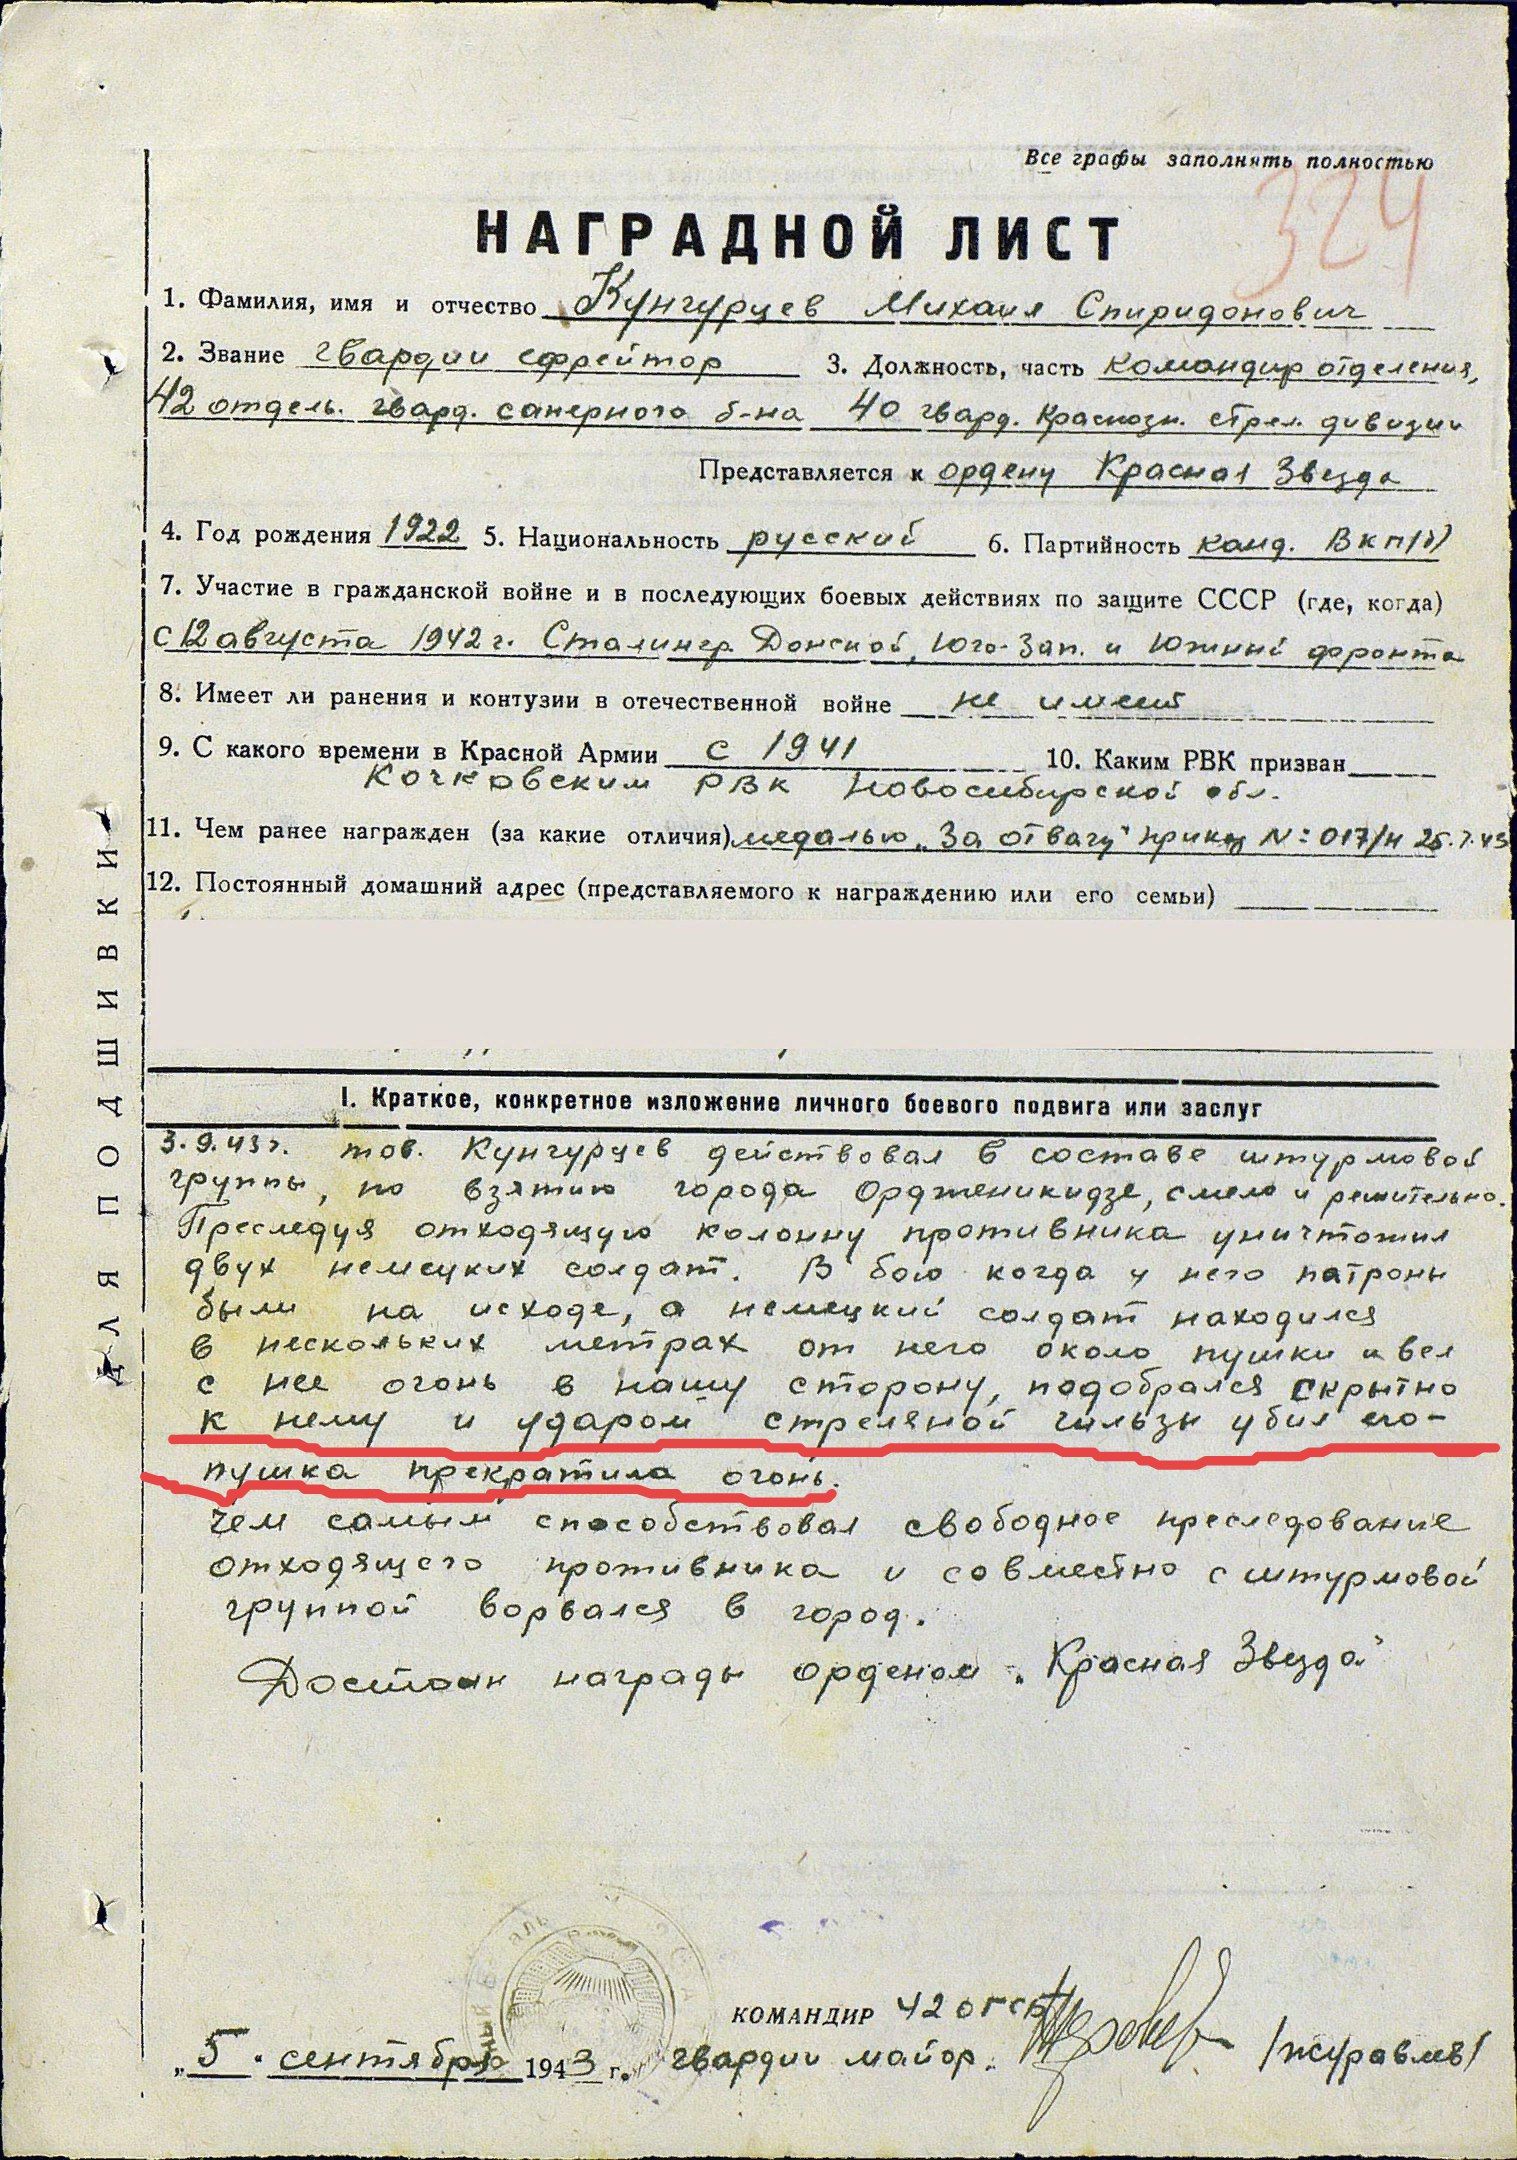 Все графы заполнять полностью
324
НАГРАДНОЙ ЛИСТ
1. Фамилия, имя и отчество Кунгурцев Михаил Спиридонович
2. Звание гвардии ефрейтор 3. Должность, часть командир отделения,
42 отдель. гвард. саперного б-на 40 гвард. Краснозн. стрел. дивизии
Представляется к ордену Красная Звезда
4. Год рождения 1922 5. Национальность русский 6. Партийность канд. ВКП(б)
7. Участие в гражданской войне и в последующих боевых действиях по защите СССР (где, когда)
с 12 августа 1942 г. Сталингр. Донской, Юго-Зап. и Южный фронта
8. Имеет ли ранения и контузии в отечественной войне не имеет
9. С какого времени в Красной Армии с 1941 10. Каким РВК призван
Кочковским РВК Новосибирской обл.
11. Чем ранее награжден (за какие отличия) медалью „За отвагу" приказ №: 017/н 25.7.43
12. Постоянный домашний адрес (представляемого к награждению или его семьи)
ДЛЯ ПОДШИВКИ
I. Краткое, конкретное изложение личного боевого подвига или заслуг
3.9.43г. тов. Кунгурцев действовал в составе штурмовой
группы, по взятию города Орджени­кидзе, смело и решительно.
Преследуя отходящую колонну противника уничтожил
двух немецких солдат. В бою когда у него патроны
были на исходе, а немецкий солдат находился
в нескольких метрах от него около пушки и вел
с нее огонь в нашу сторону, подобрался скрытно
к нему и ударом стреляной гильзы убил его-
пушка прекратила огонь.
Чем самым способствовал свободное преследование
отходящего противника и совместно с штурмовой
группой ворвался в город.
Достоин награды орденом „Красная Звезда"
КОМАНДИР 42 ОГСБ
„5" сентября 1943 г. гвардии майор. /Журавлев/